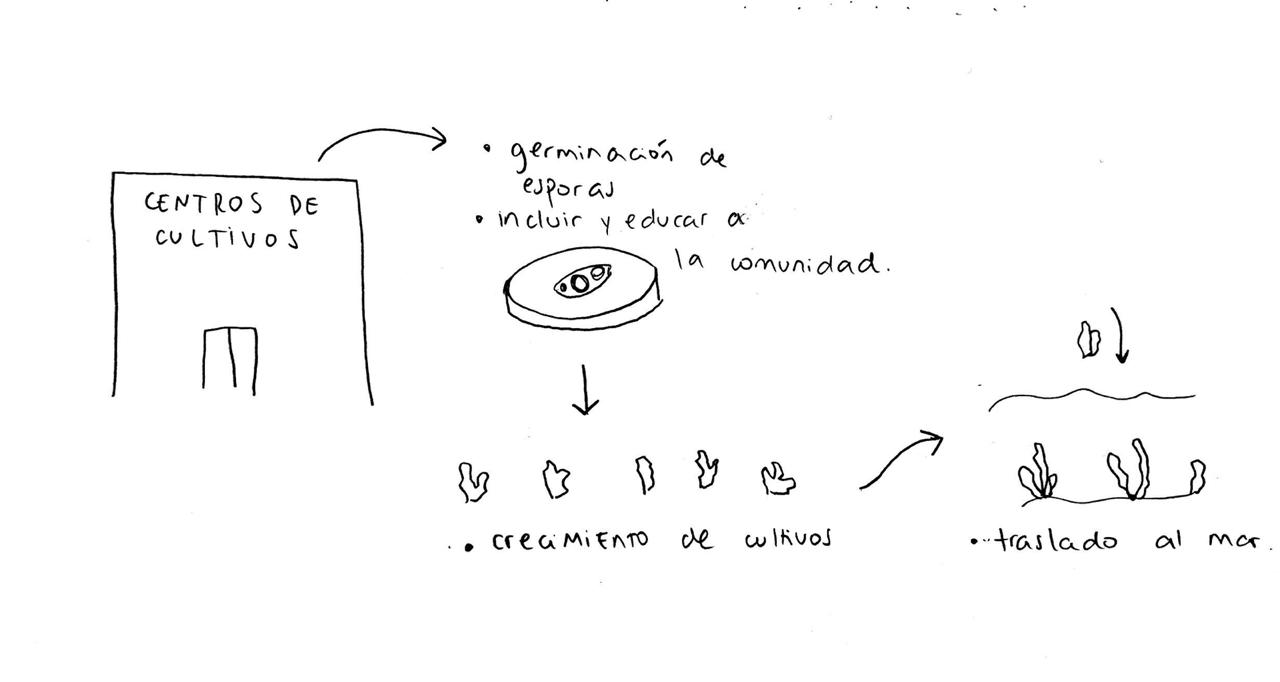 CENTROS DE
CULTIVOS
• germinación de
esporas
• incluir y educar a
la comunidad.
• crecimiento de cultivos
• traslado al mar.